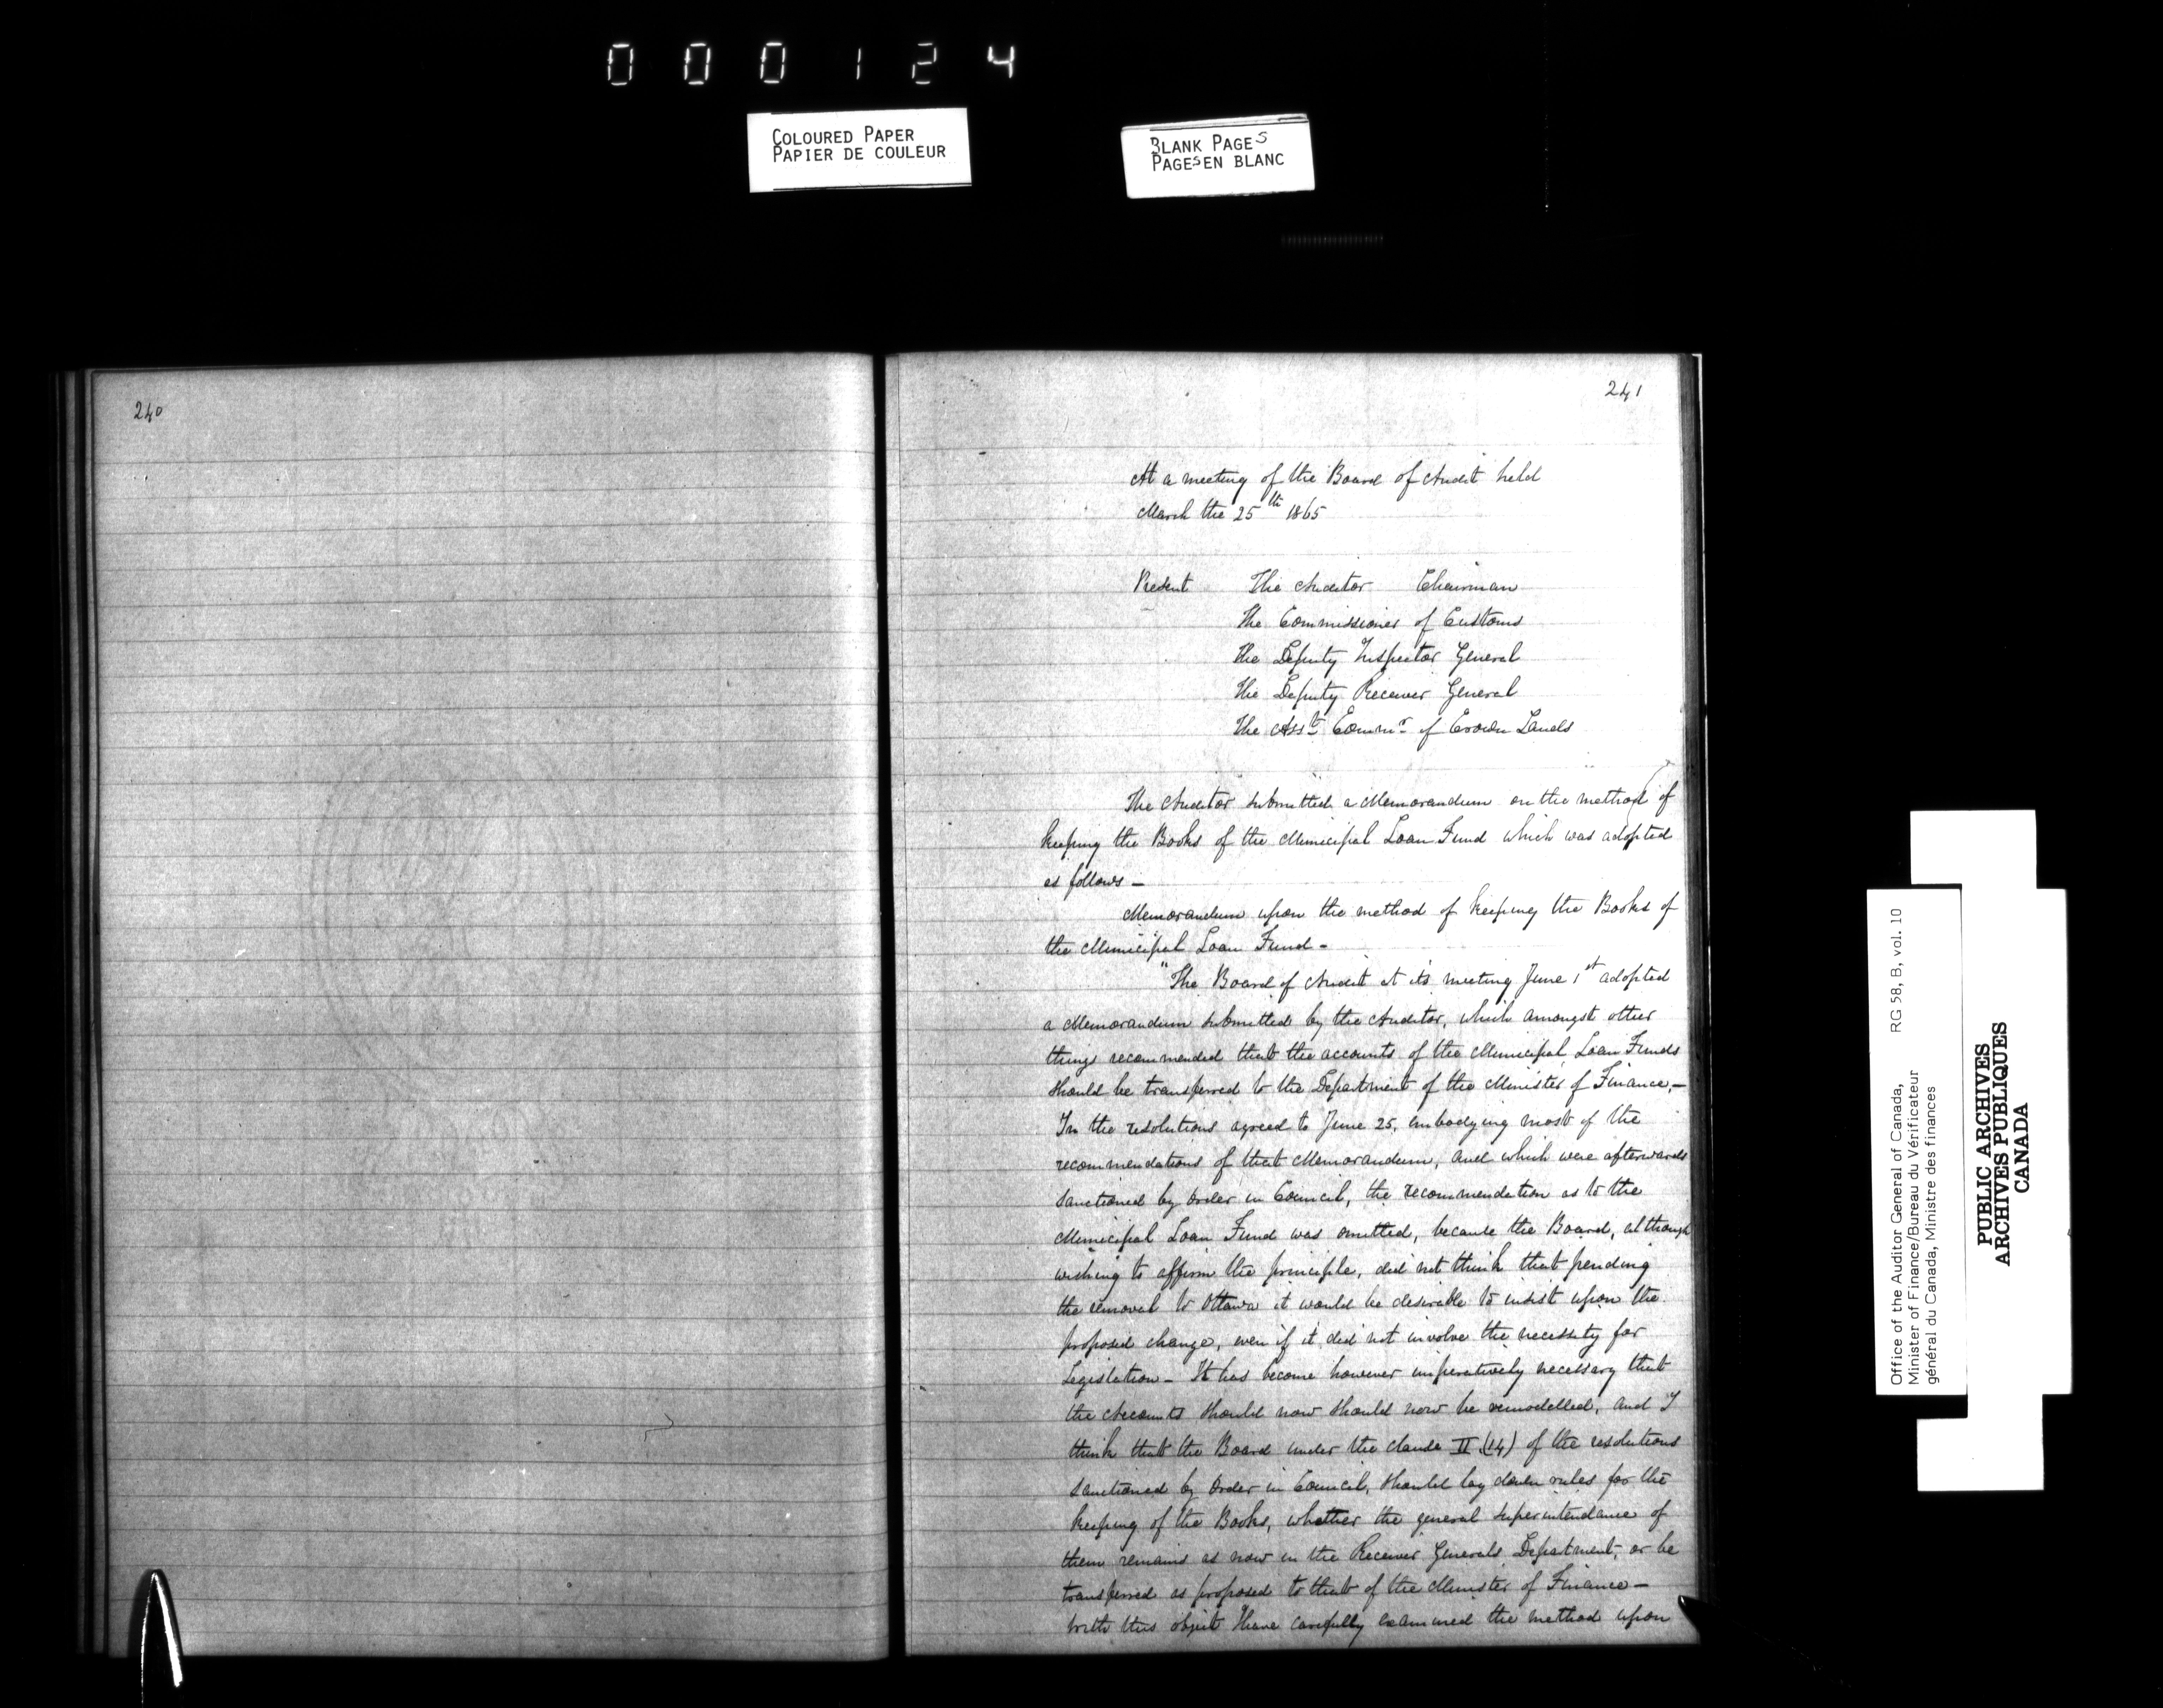 000124
COLOURED PAPER
PAPIER DE COULEUR
BLANK PAGES
PAGES EN BLANC
240
241
At a meeting of the Board of Audit held
March the 25th 1865
Present The Auditor Chairman
The Commissioner of Customs
The Deputy Inspector General
The Deputy Receiver General
The Asst Commr of Crown Lands
The Auditor submitted a Memorandum on the method of
keeping the Books of the Municipal Loan Fund which was adopted
as follows –
Memorandum upon the method of keeping the Books of
the Municipal Loan Fund –
"The Board of Audit at its meeting June 1st adopted
a Memorandum submitted by the Auditor, which amongst other
things recommended that the accounts of the Municipal Loan Funds
should be transferred to the Department of the Minister of Finance, –
In the resolutions agreed to June 25, embodying most of the
recommendations of that Memorandum, and which were afterwards
sanctioned by Order in Council, the recommendation as to the
Municipal Loan Fund was omitted, because the Board, although
wishing to affirm the principle, did not think that pending
the removal to Ottawa it would be desirable to insist upon the
proposed change, even if it did not involve the necessity for
Legislation – It has become however imperatively necessary that
the Accounts should now should now be remodelled, and I
think that the Board under the clause II (14) of the resolutions
sanctioned by Order in Council, should lay down rules for the
keeping of the Books, whether the general superintendance of
them remains as now in the Receiver Generals Department, or be
transferred as proposed to that of the Minister of Finance –
With this object I have carefully examined the method upon
Office of the Auditor General of Canada, RG 58, B, vol. 10
Minister of Finance/Bureau du Vérificateur
général du Canada, Ministre des finances
PUBLIC ARCHIVES
ARCHIVES PUBLIQUES
CANADA